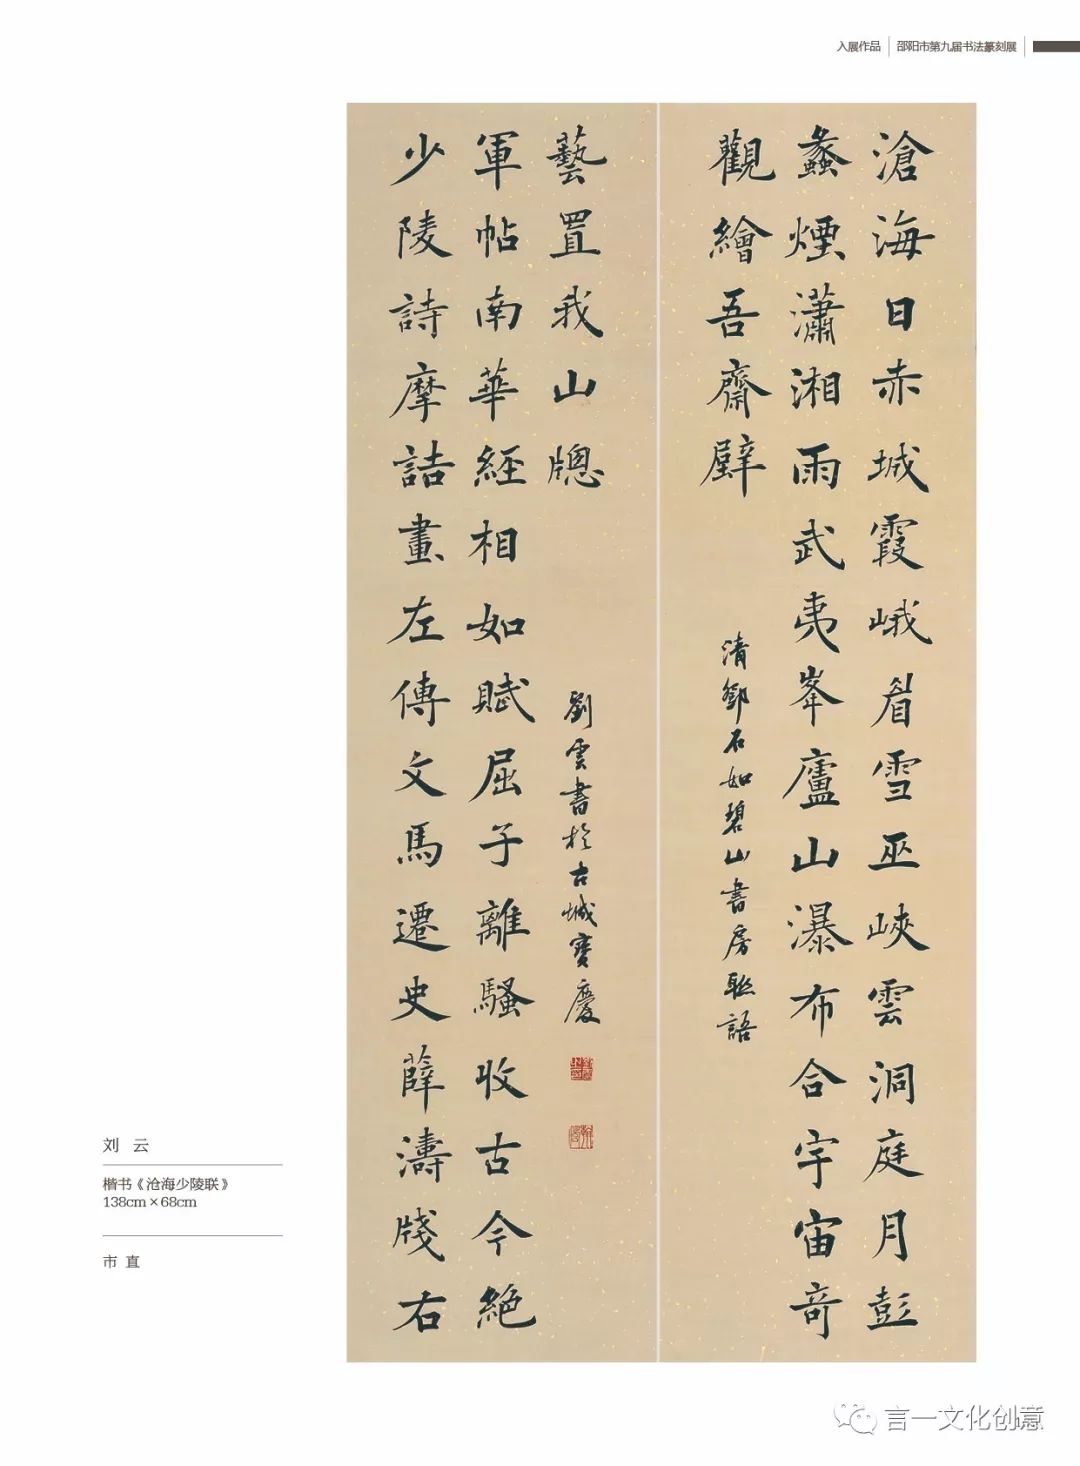 入展作品 邵阳市第九届书法篆刻展
滄海日赤城霞峨眉雪巫峽雲洞庭月彭
蠡煙瀟湘雨武夷峯廬山瀑布合宇宙奇
觀繪吾齋壁
清鄧石如碧山書房聯語
少陵詩摩詰畫左傳文馬遷史薛濤牋右
軍帖南華經相如賦屈子離騷收古今絕
藝置我山牕
劉雲書於古城寶慶
刘 云
楷书《沧海少陵联》
138cm×68cm
市 直
言一文化创意